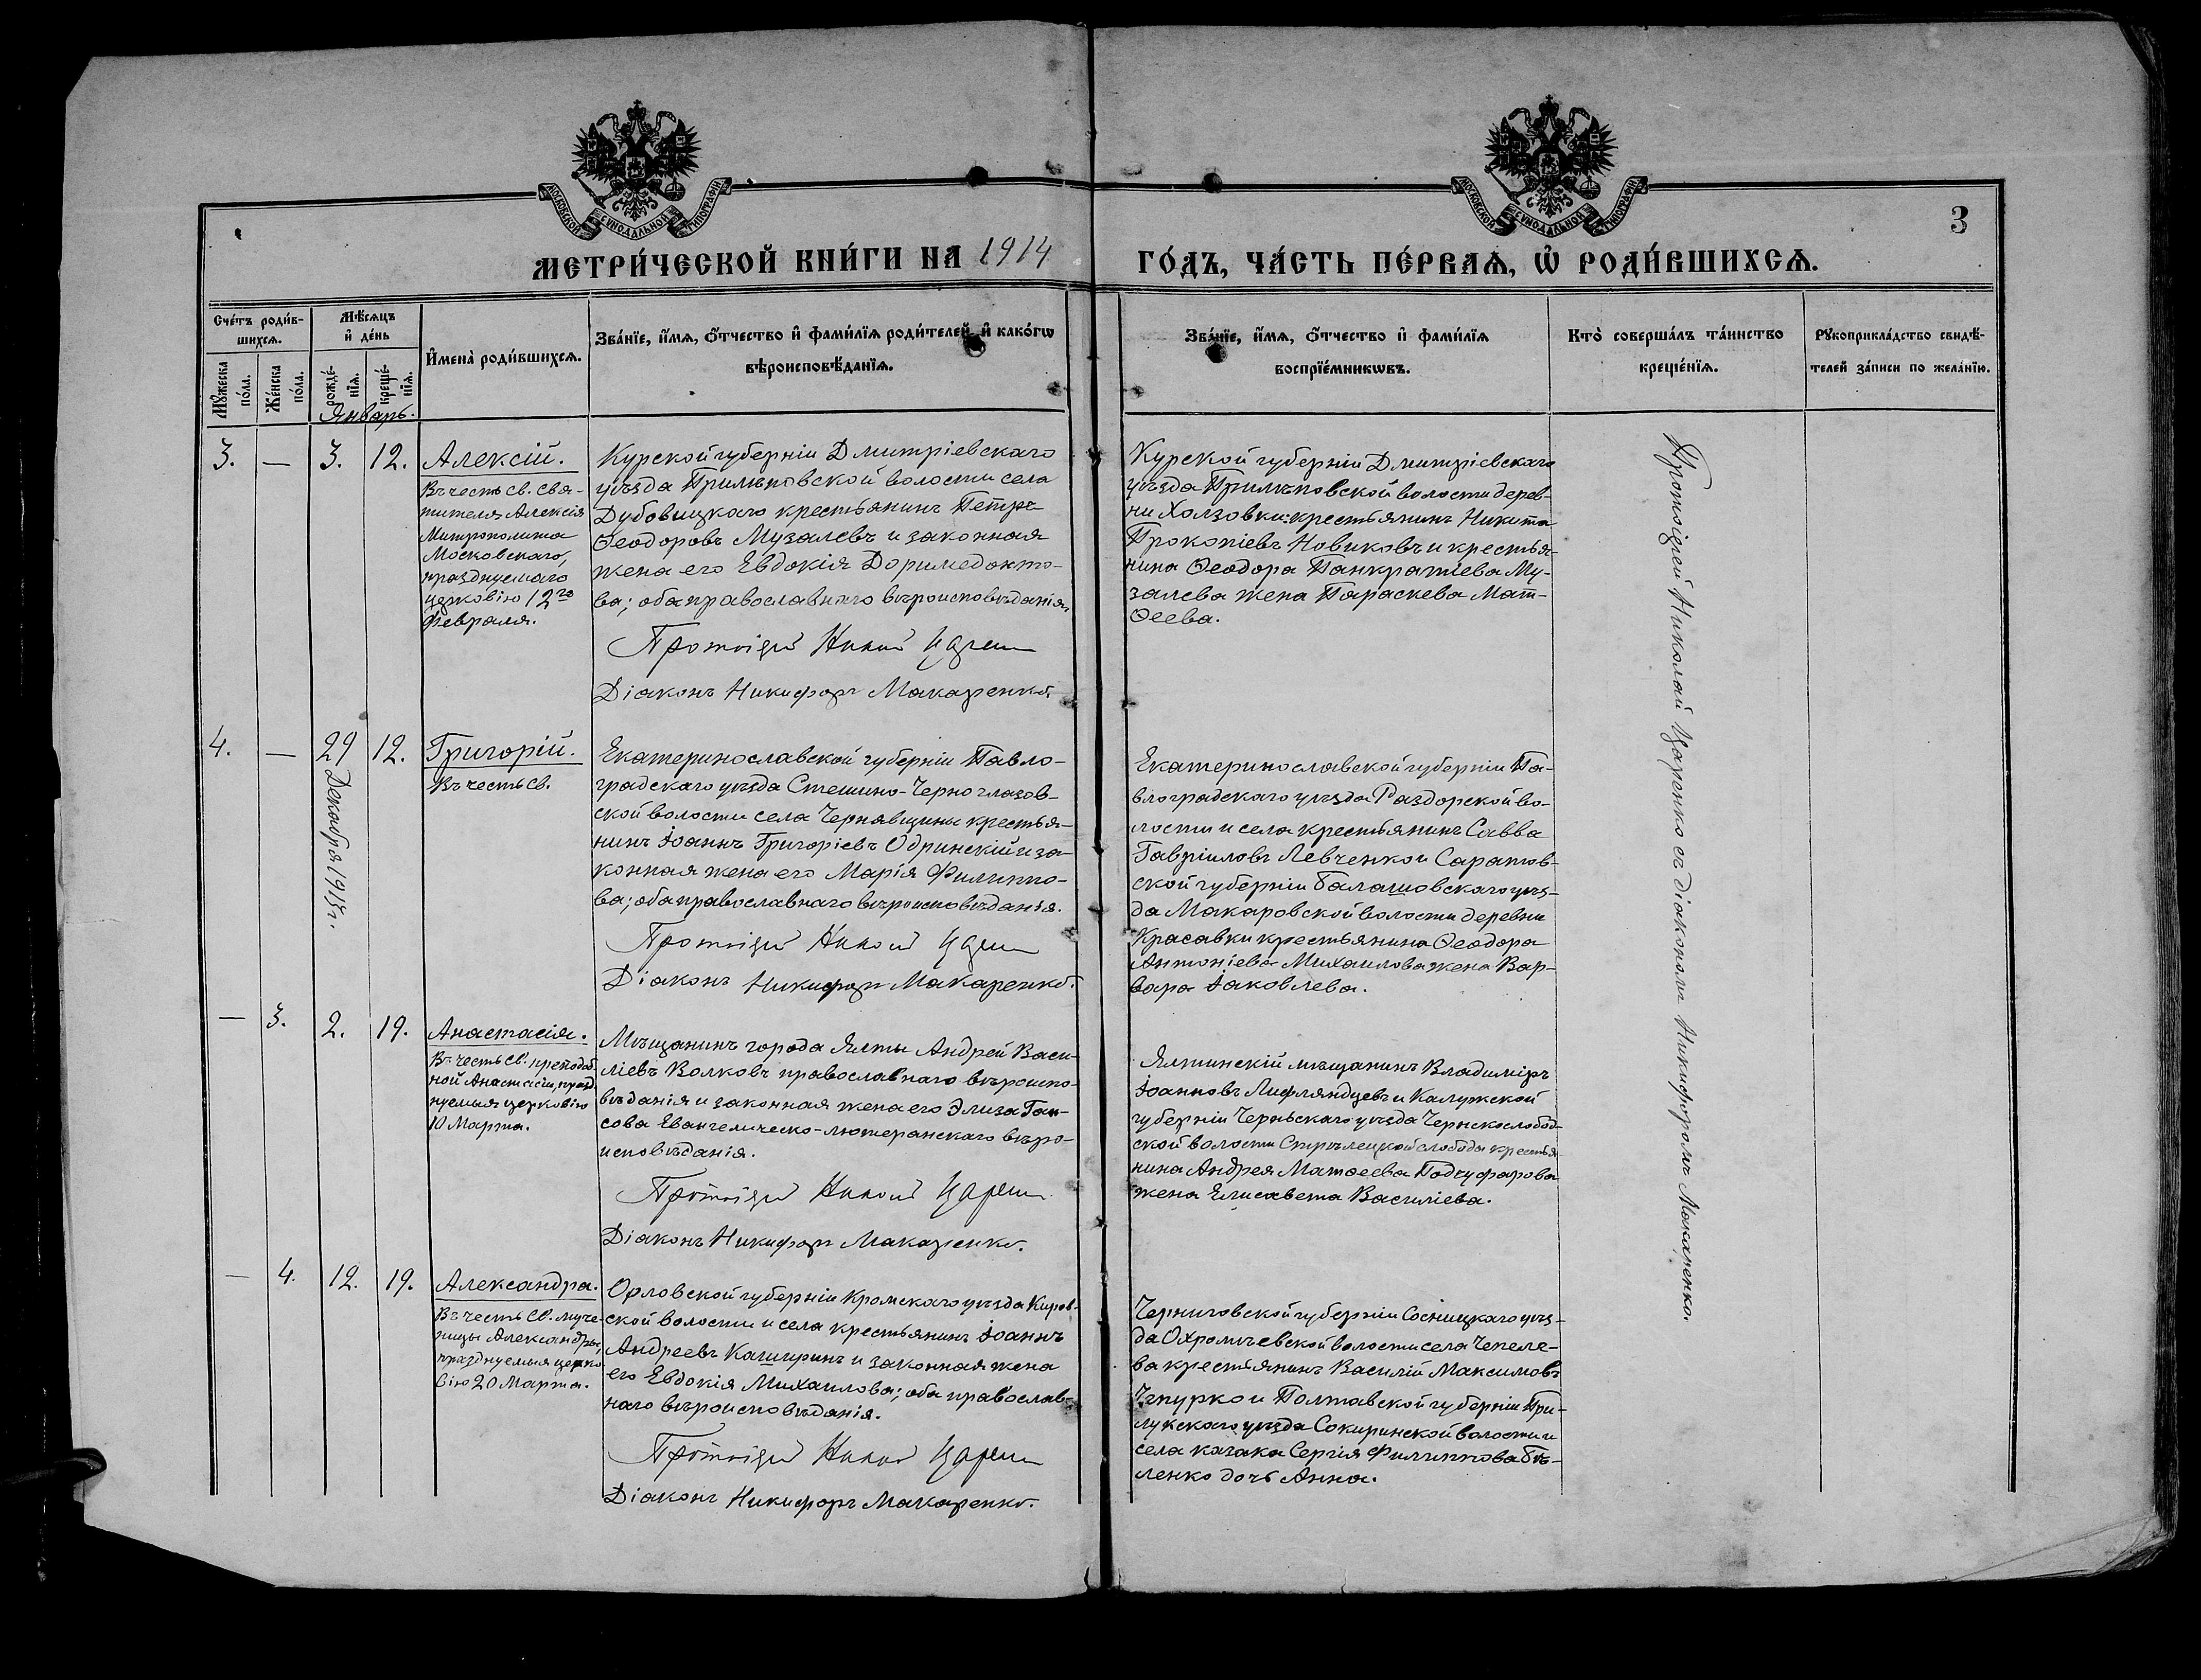 МОСКОВСКОЙ СѴНОДАЛЬНОЙ ТИПОГРАФІИ
МОСКОВСКОЙ СѴНОДАЛЬНОЙ ТИПОГРАФІИ
3
МЕТРИ́ЧЕСКОЙ КНИ́ГИ НА 1914
ГО́ДЪ, ЧА́СТЬ ПЕ́РВАѦ, Ѡ҆ РОДИ́ВШИХСѦ.
Сче́тъ роди́в-
шихсѧ.
Мꙋ́жеска
по́ла.
Же́нска
по́ла.
Мѣ́сѧцъ
и҆ де́нь
рожде́-
нїѧ.
креще́-
нїѧ.
Январь.
И҆мена̀ роди́вшихсѧ.
Зва́нїе, и҆́мѧ, ѻ҆́тчество и҆ фами́лїѧ роди́телей, и҆ како́гѡ
вѣроисповѣ́данїѧ.
Зва́нїе, и҆́мѧ, ѻ҆́тчество и҆ фами́лїѧ
воспрїе́мникѡвъ.
Кто̀ соверша́лъ та́инство
креще́нїѧ.
Рꙋкоприкла́дство свидѣ́-
телей за́писи по жела́нїю.
3. — 3. 12. Алексій.
Въ честь св. свя-
тителя Алексія
Митрополита
Московскаго,
празднуемаго
церковію 12го
Февраля.
Курской губерніи Дмитріевскаго
уѣзда Прилѣповской волости села
Дубовицкаго крестьянинъ Петръ
Ѳеодоровъ Музалевъ и законная
жена его Евдокія Доримедонто-
ва; оба православнаго вѣроисповѣданія.
Протоіерей
Діаконъ Никифоръ Макаренко.
Курской губерніи Дмитріевскаго
уѣзда Прилѣповской волости дерев-
ни Холзовки: крестьянинъ Никита
Прокопіевъ Новиковъ и крестья-
нина Ѳеодора Панкратіева Му-
залева жена Параскева Мат-
ѳеева.
Протоіерей Николай Царенко съ діакономъ Никифоромъ Макаренко.
4. — 29 12. Григорій.
Декабря 1913 г.
Въ честь св.
Екатеринославской губерніи Павло-
градскаго уѣзда Стешино-Черноглазов-
ской волости села Чернявщины крестья-
нинъ Іоаннъ Григоріевъ Одринскій и за-
конная жена его Марія Филиппо-
ва; оба православнаго вѣроисповѣданія.
Протоіерей
Діаконъ Никифоръ Макаренко.
Екатеринославской губерніи Па-
влоградскаго уѣзда Раздорской во-
лости и села крестьянинъ Савва
Гавріиловъ Левченко и Саратов-
ской губерніи Балашовскаго уѣз-
да Макаровской волости деревни
Красавки крестьянина Ѳеодора
Антоніева Михаилова жена Вар-
вара Іаковлева.
— 3. 2. 19. Анастасія.
Въ честь св. преподоб-
ной Анастасіи, празд-
нуемыя церковію
10 Марта.
Мѣщанинъ города Ялты Андрей Васи-
ліевъ Волковъ православнаго вѣроиспо-
вѣданія и законная жена его Элиза Ган-
сова Евангелическо-лютеранскаго вѣро-
исповѣданія.
Протоіерей
Діаконъ Никифоръ Макаренко.
Ялтинскій мѣщанинъ Владиміръ
Іоанновъ Лифляндцевъ и Калужской
губерніи Чернскаго уѣзда Чернскослобод-
ской волости Стрѣлецкой слободы крестья
нина Андрея Матѳеева Подчуфарова
жена Елисавета Василіева.
— 4. 12. 19. Александра.
Въ честь св. муче-
ницы Александры,
празднуемыя церко-
вію 20 Марта.
Орловской губерніи Кромскаго уѣзда Киров-
ской волости и села крестьянинъ Іоаннъ
Андреевъ Каширинъ и законная жена
его Евдокія Михаилова; оба православ-
наго вѣроисповѣданія.
Протоіерей
Діаконъ Никифоръ Макаренко.
Черниговской губерніи Сосницкаго уѣз-
да Охромѣевской волости села Чепеле-
ва крестьянинъ Василій Максимовъ
Чепурко и Полтавской губерніи При-
лукскаго уѣзда Сокиринской волости и
села казака Сергія Филиппова Бѣ-
ленко дочь Анна.